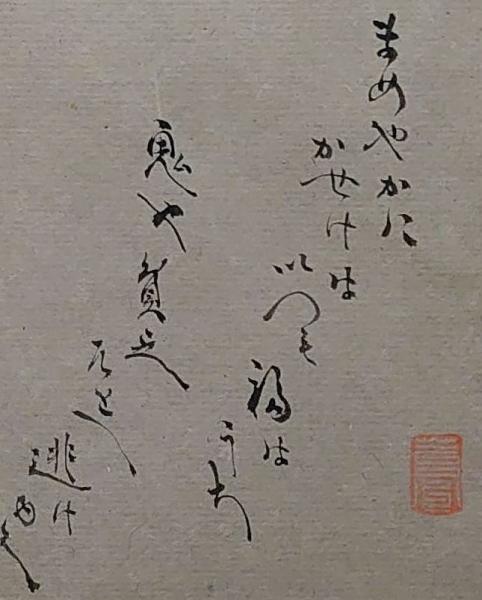 まめやかに
かせけは
いつも
福は
うち
鬼や貧乏
そとへ
逃け
ゆく